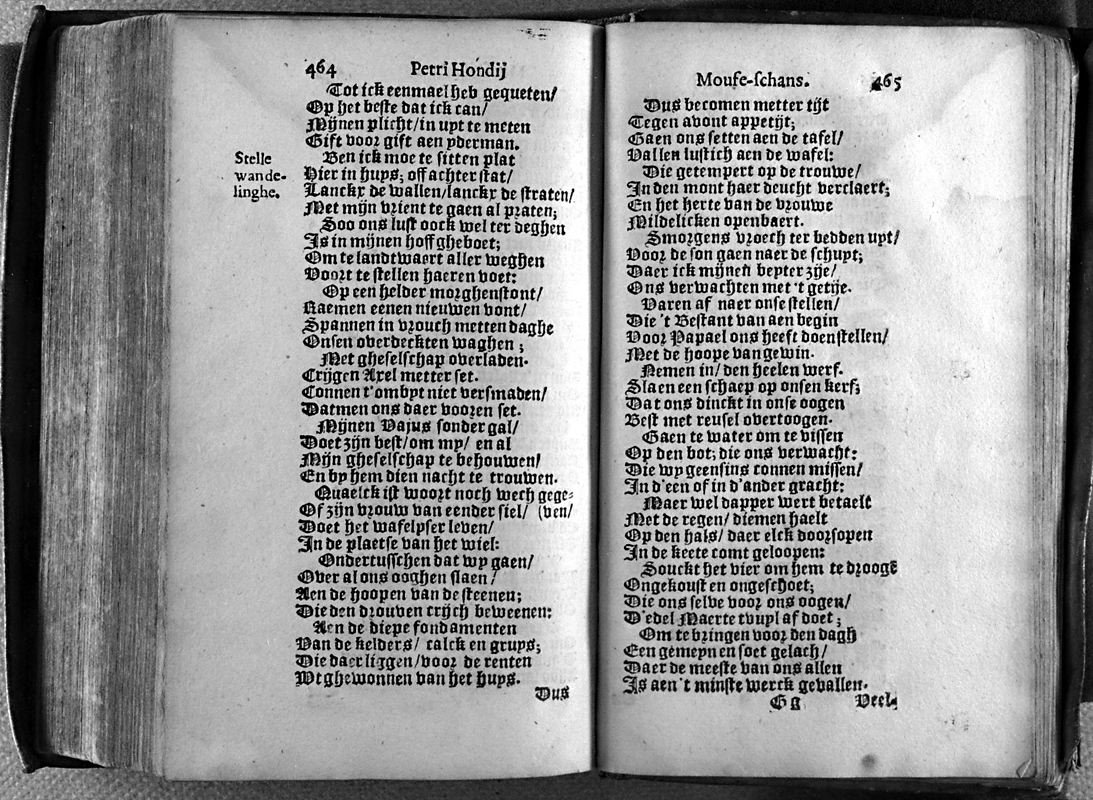 464 Petri Hondij
Tot ick eenmael heb gequeten/
Op het beste dat ick can/
Mijnen plicht/in uyt te meten
Gift voor gift aen yderman.
Stelle
wande-
linghe.
Ben ick moe te sitten plat
Hier in huys; off achter stat/
Lanckx de wallen/lanckx de straten/
Met mijn vrient te gaen al praten;
Soo ons lust oock wel ter deghen
Is in mijnen hoff gheboet;
Om te landtwaert aller weghen
Voort te stellen haeren voet:
Op een helder morghenstont/
Raemen eenen nieuwen vont/
Spannen in vrouch metten daghe
Onsen overdeckten waghen;
Met gheselschap overladen.
Crijgen Axel metter set.
Connen t'ombyt niet versmaden/
Datmen ons daer vooren set.
Mijnen Vajus sonder gal/
Doet zijn best/om my/ en al
Mijn gheselschap te behouwen/
En by hem dien nacht te trouwen.
Quaelck ist woort noch wech gege-
Of zijn vrouw van eender siel/ (ven/
Doet het wafelyser leven/
In de plaetse van het wiel:
Ondertusschen dat wy gaen/
Over al ons ooghen slaen/
Aen de hoopen van de steenen;
Die den droeven crijch beweenen:
Aen de diepe fondamenten
Van de kelders/ calck en gruys;
Die daer liggen/voor de renten
Wtghewonnen van het huys.
Dus
Mouse-schans. 465
Dus becomen metter tijt
Tegen avont appetijt;
Gaen ons setten aen de tafel/
Vallen lustich aen de wafel:
Die getempert op de trouwe/
In den mont haer deucht verclaert;
En het herte van de vrouwe
Mildelicken openbaert.
Smorgens vroech ter bedden uyt/
Voor de son gaen naer de schuyt;
Daer ick mijnen beyter zije/
Ons verwachten met 't getije.
Varen af naer onse stellen/
Die 't Bestant van aen begin
Voor Papael ons heeft doen stellen/
Met de hoope van gewin.
Nemen in/ den heelen werf.
Slaen een schaep op onsen kerf;
Dat ons dinckt in onse oogen
Best met reusel overtoogen.
Gaen te water om te vissen
Op den bot; die ons verwacht:
Die wy geensins connen missen/
In d'een of in d'ander gracht:
Maer wel dapper wert betaelt
Met de regen/ diemen haelt
Op den hals/ daer elck doorsopen
In de keete comt geloopen:
Souckt het vier om hem te drooge
Ongekoust en ongeschoet;
Die ons selve voor ons oogen/
D'edel Maerte tvuyl af doet;
Om te bringen voor den dagh
Een gemeyn en soet gelach/
Daer de meeste van ons allen
Is aen 't minste werck gevallen.
Gg Veel